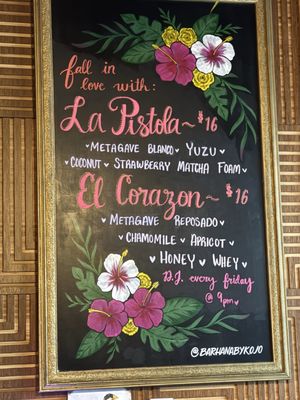 fall in
love with:
La Pistola ~ $16
♥ METAGAVE BLANCO ♥ YUZU ♥
♥ COCONUT ♥ STRAWBERRY MATCHA FOAM ♥
El Corazon ~ $16
♥ METAGAVE REPOSADO ♥
CHAMOMILE ♥ APRICOT ♥
♥ HONEY ♥ WHEY ♥
D.J. every friday
@ 9pm
@BARHANABYKOJO